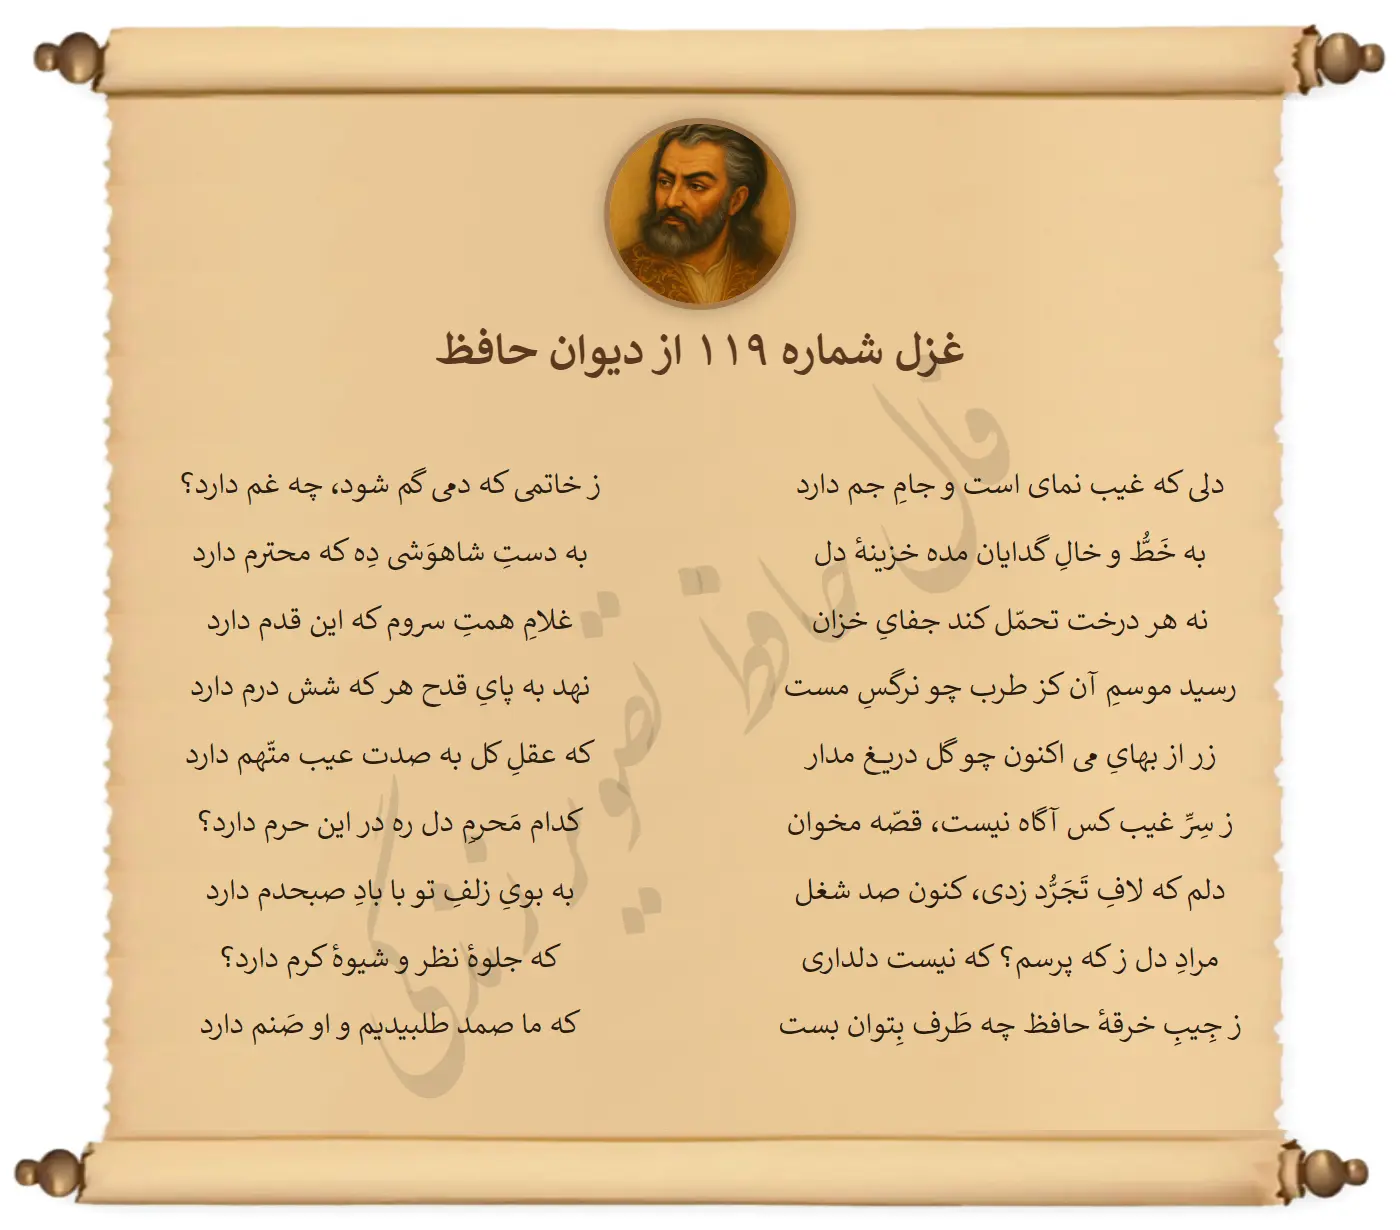 غزل شماره ۱۱۹ از دیوان حافظ
دلی که غیب نمای است و جامِ جم دارد
ز خاتمی که دمی گم شود، چه غم دارد؟
به خَطُّ و خالِ گدایان مده خزینهٔ دل
به دستِ شاهوَشی دِه که محترم دارد
نه هر درخت تحمّل کند جفایِ خزان
غلامِ همتِ سروم که این قدم دارد
رسید موسمِ آن کز طرب چو نرگسِ مست
نهد به پایِ قدح هر که شش درم دارد
زر از بهایِ می اکنون چو گل دریغ مدار
که عقلِ کل به صدت عیب متّهم دارد
ز سِرِّ غیب کس آگاه نیست، قصّه مخوان
کدام مَحرمِ دل ره در این حرم دارد؟
دلم که لافِ تَجَرُّد زدی، کنون صد شغل
به بویِ زلفِ تو با بادِ صبحدم دارد
مرادِ دل ز که پرسم؟ که نیست دلداری
که جلوهٔ نظر و شیوهٔ کرم دارد؟
ز جِیبِ خرقهٔ حافظ چه طَرف بِتوان بست
که ما صمد طلبیدیم و او صَنم دارد
فال حافظ تصویر زندگی